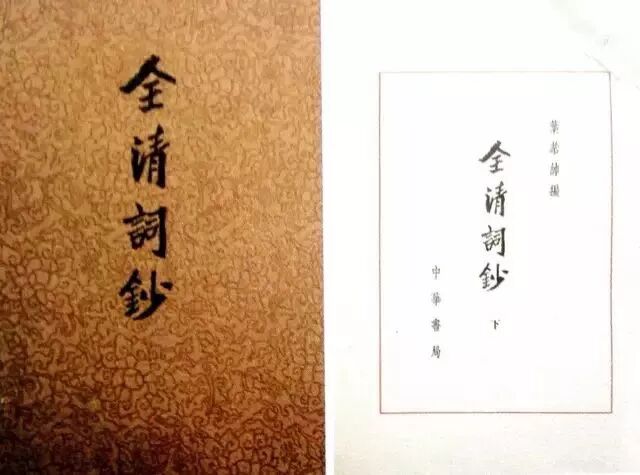 全清詞鈔
葉恭綽編
全清詞鈔
下
中華書局